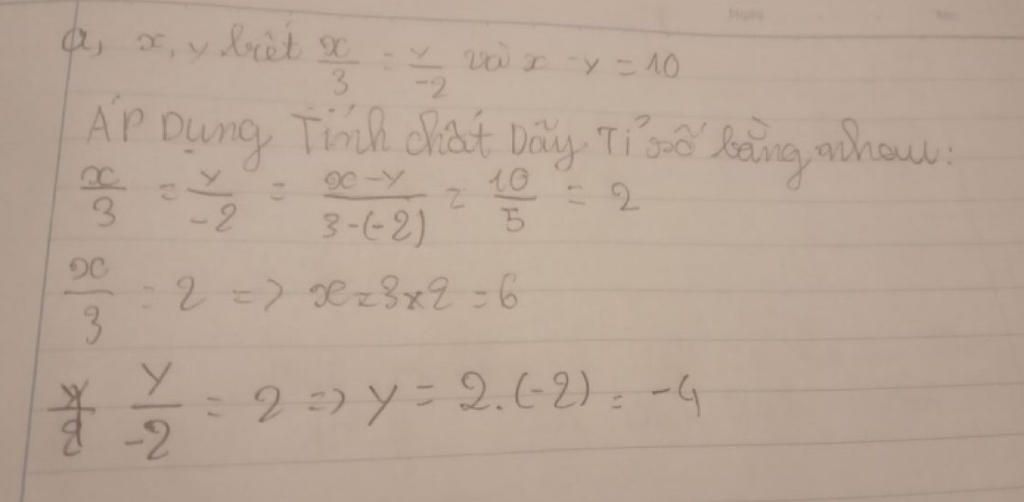 a, x, y biết x/3 = y/-2 và x - y = 10
ÁP Dụng Tính chất Dãy Tỉ số bằng nhau:
x/3 = y/-2 = x-y/3-(-2) = 10/5 = 2
x/3 = 2 => x = 3 × 2 = 6
y/-2 = 2 => y = 2.(-2) = -4